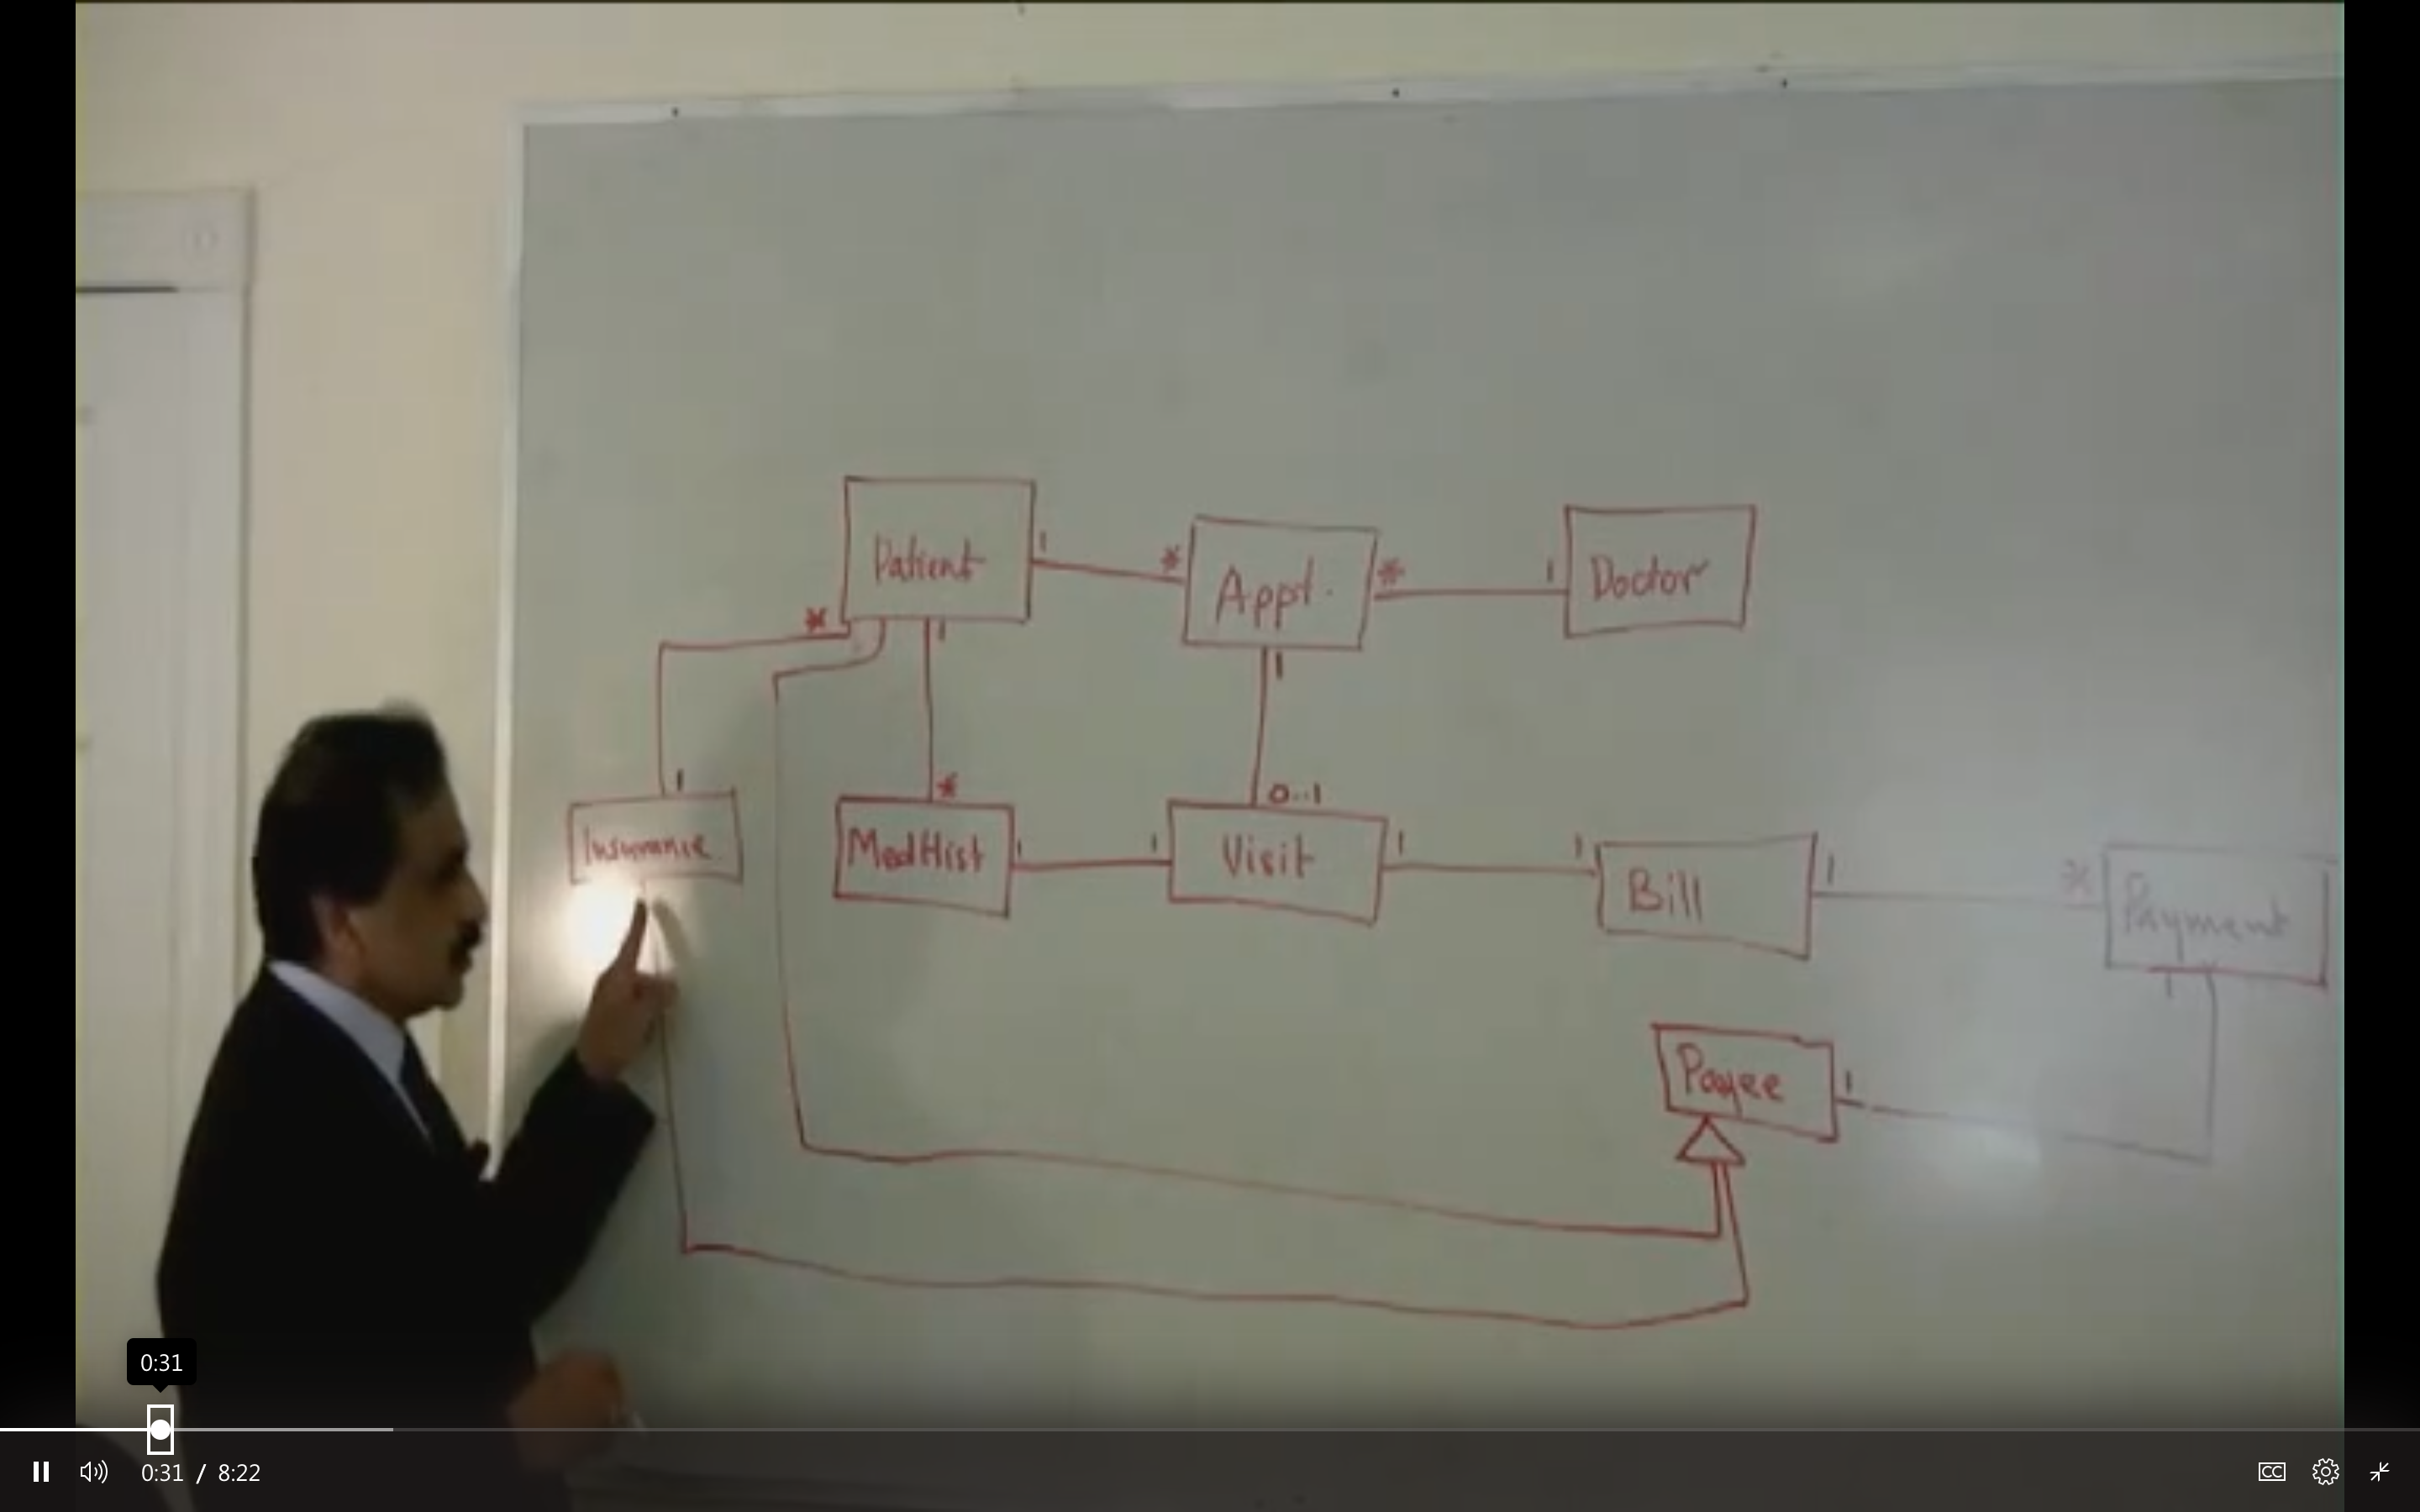 Patient
1
*
Appt.
*
1
Doctor
*
1
1
1
*
0..1
Insurance
MedHist
1
1
Visit
1
1
Bill
1
*
Payment
1
Payee
1
0:31
0:31 / 8:22
CC